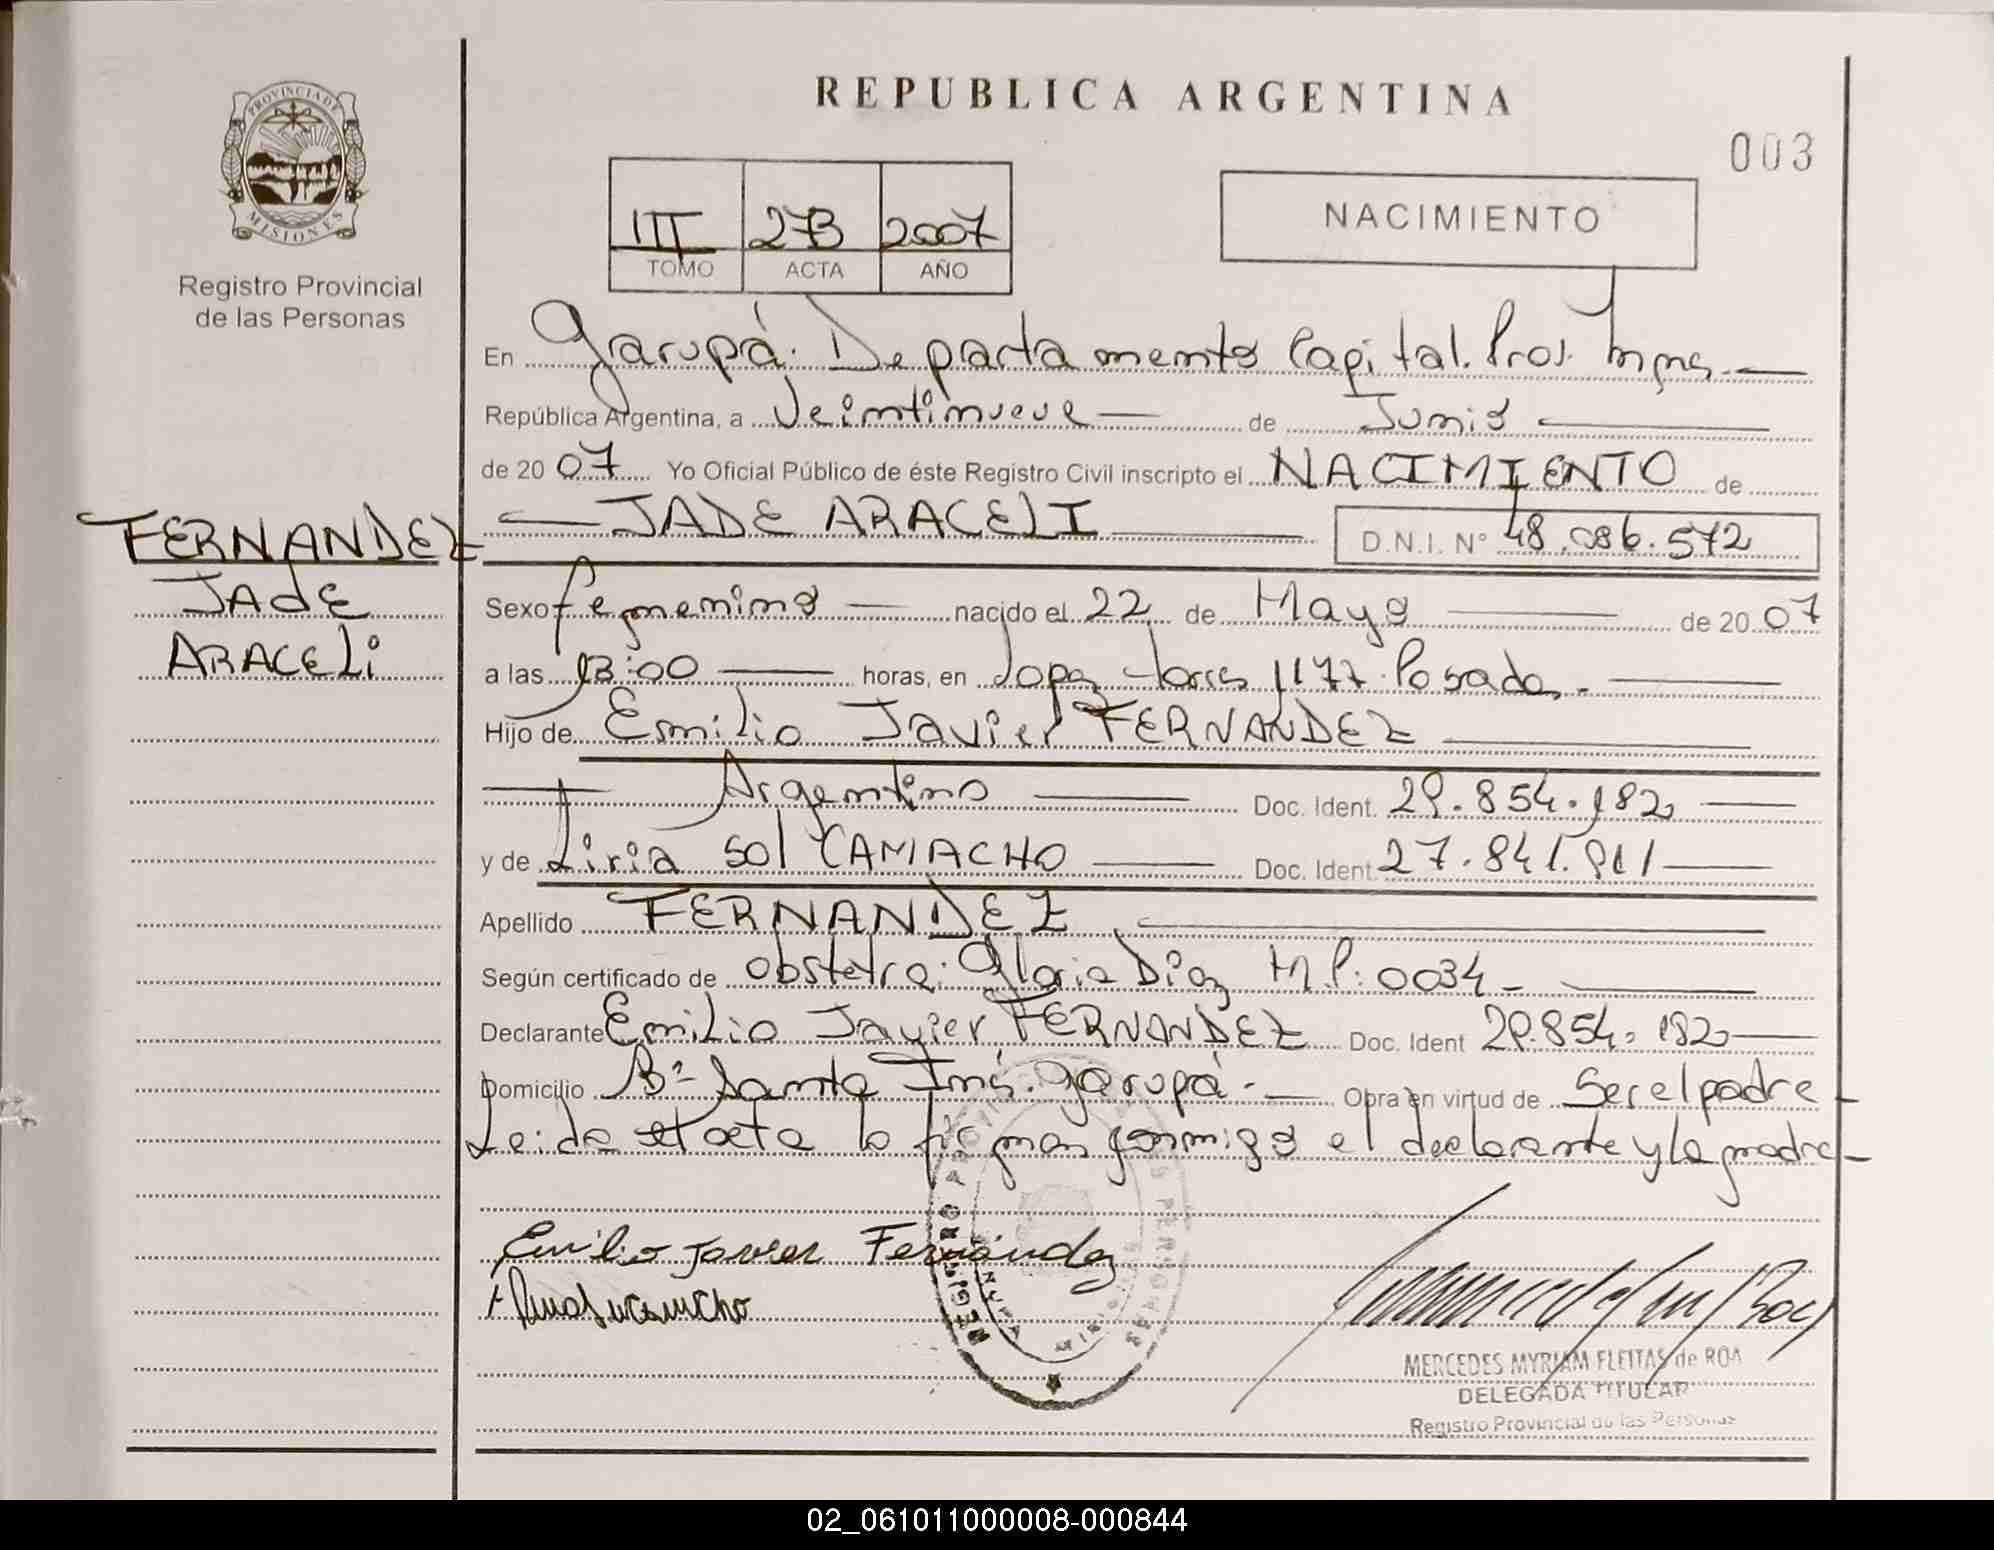 PROVINCIA DE
MISIONES
Registro Provincial
de las Personas
FERNANDEZ
JAdE
ARACELi
REPUBLICA ARGENTINA
003
III 273 2007
TOMO ACTA AÑO
NACIMIENTO
En Garupá. Departamento Capital. Prov. Mnes.
República Argentina, a Veintinueve de Junio
de 20 07 Yo Oficial Público de éste Registro Civil inscripto el NACIMIENTO de
JADE ARACELI D.N.I. N° 48.086.572
Sexo femenino nacido el 22 de Mayo de 20 07
a las 13:00 horas, en Lopez torres 1177. Posadas.
Hijo de Emilio Javier FERNANDEZ
Argentino Doc. Ident. 29.854.182
y de Liria Sol CAMACHO Doc. Ident. 27.841.911
Apellido FERNANDEZ
Según certificado de obstetra: Gloria Diaz M.P: 0034
Declarante Emilio Javier FERNANDEZ Doc. Ident 29.854.182
Domicilio B° Santa Inés. Garupá. Obra en virtud de Ser el padre
Leida el acta la firman conmigo el declarante y la madre
Emilio Javier Fernández
MERCEDES MYRIAM FLEITAS de ROA
DELEGADA TITULAR
Registro Provincial de las Personas
02_061011000008-000844